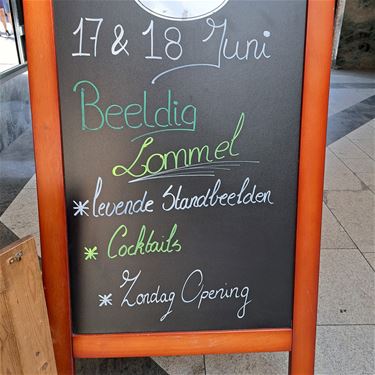 17 & 18 Juni
Beeldig
Lommel
* levende Standbeelden
* Cocktails
* Zondag Opening